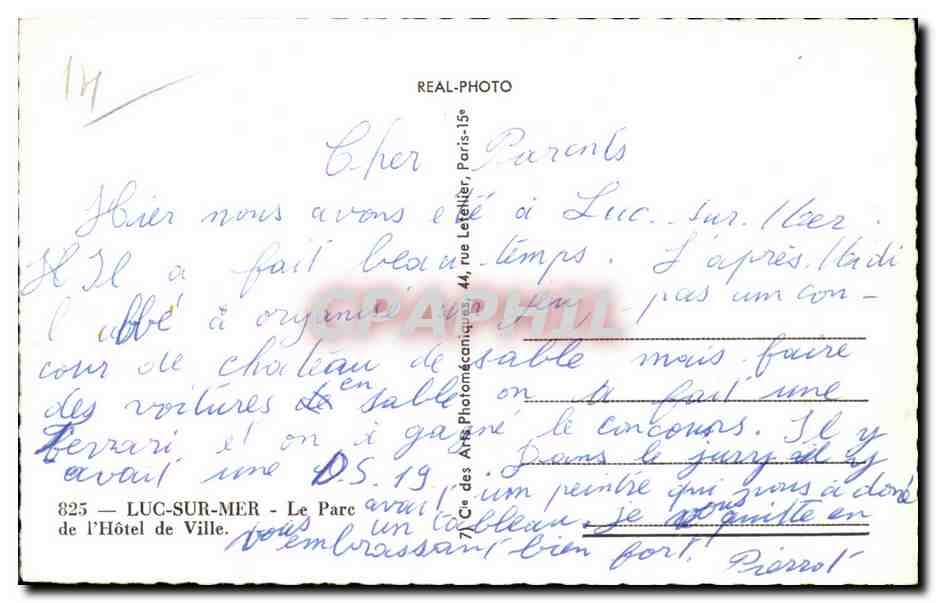 14
REAL-PHOTO
Cher Parents
Hier nous avons été à Luc-sur-Mer.
Il a fait beau temps. L'après Midi
l'abbé à organisé un jeu pas un con-
cour de chateau de sable mais faire
des voitures en sable on a fait une
Ferrari et on à gagné le concours. Il y
avait une D.S. 19. Dans le jury il y
avait un peintre qui nous à doné
un tableau. Je vous quitte en
vous embrassant bien fort.
Pierrot
825 — LUC-SUR-MER - Le Parc
de l'Hôtel de Ville.
7) Cie des Arts Photomécaniques, 44, rue Letellier, Paris-15e
CPAPHIL